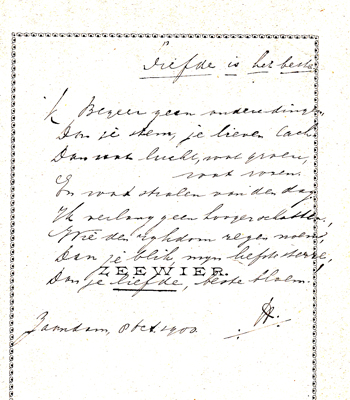 Liefde is het beste
Ik Begeer geen andere dingen,
Dan je stem, je lieven lach
Dan wat lucht, wat groen,
wat rozen.
En wat stralen van den dag
Ik verlang geen hooger schatten,
Wie den rijkdom zegen noem',
Dan je blik, mijn liefste sterre,
ZEEWIER.
Dan je liefde, beste bloem.
Zaandam, 8 Oct. 1900.